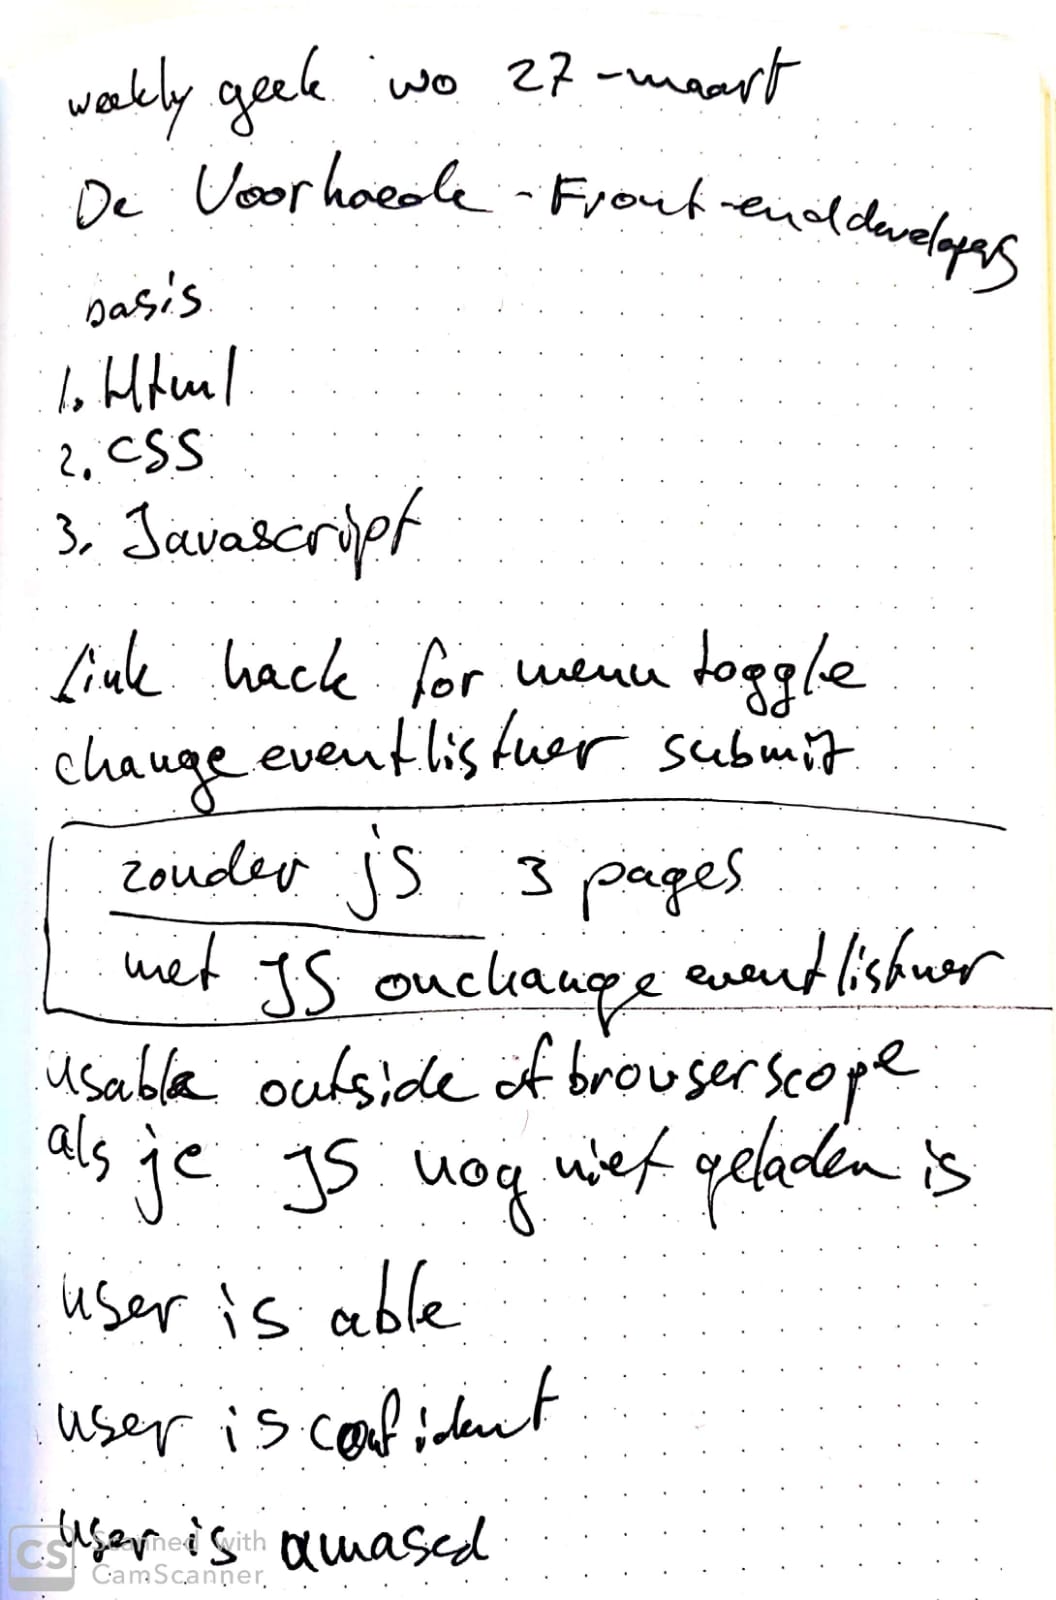 weekly geek wo 27 - maart
De Voorhoede - Front-end developers
basis
1. Html
2. CSS
3. Javascript
link hack for menu toggle
change eventlistner submit
zonder js 3 pages
met JS onchange eventlistner
usable outside of browserscope
als je JS nog niet geladen is
user is able
user is confident
user is amased
CS Scanned with
CamScanner